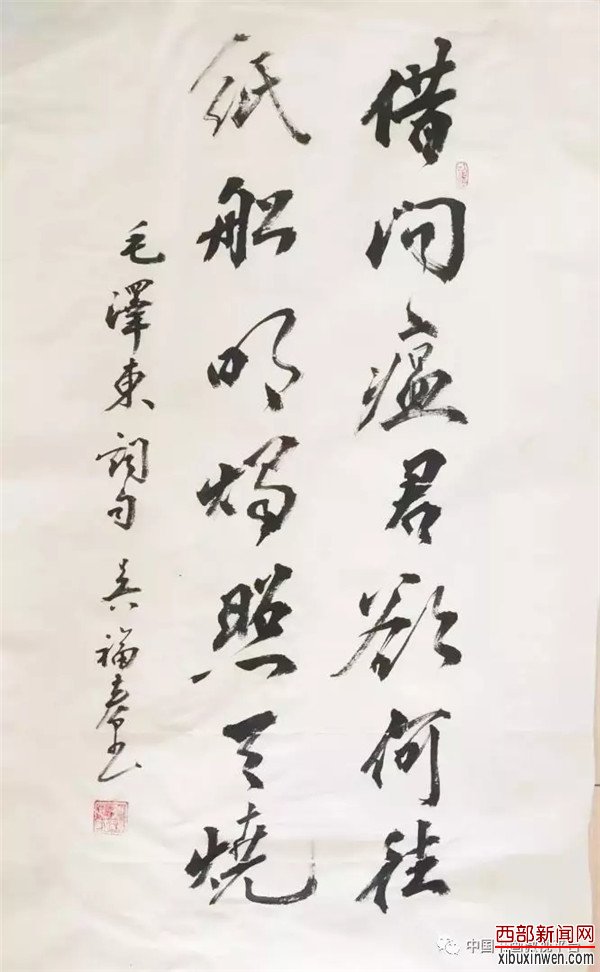 借问瘟君欲何往
纸船明烛照天燒
毛澤東詞句 吴福春书
西部新闻网
xibuxinwen.com